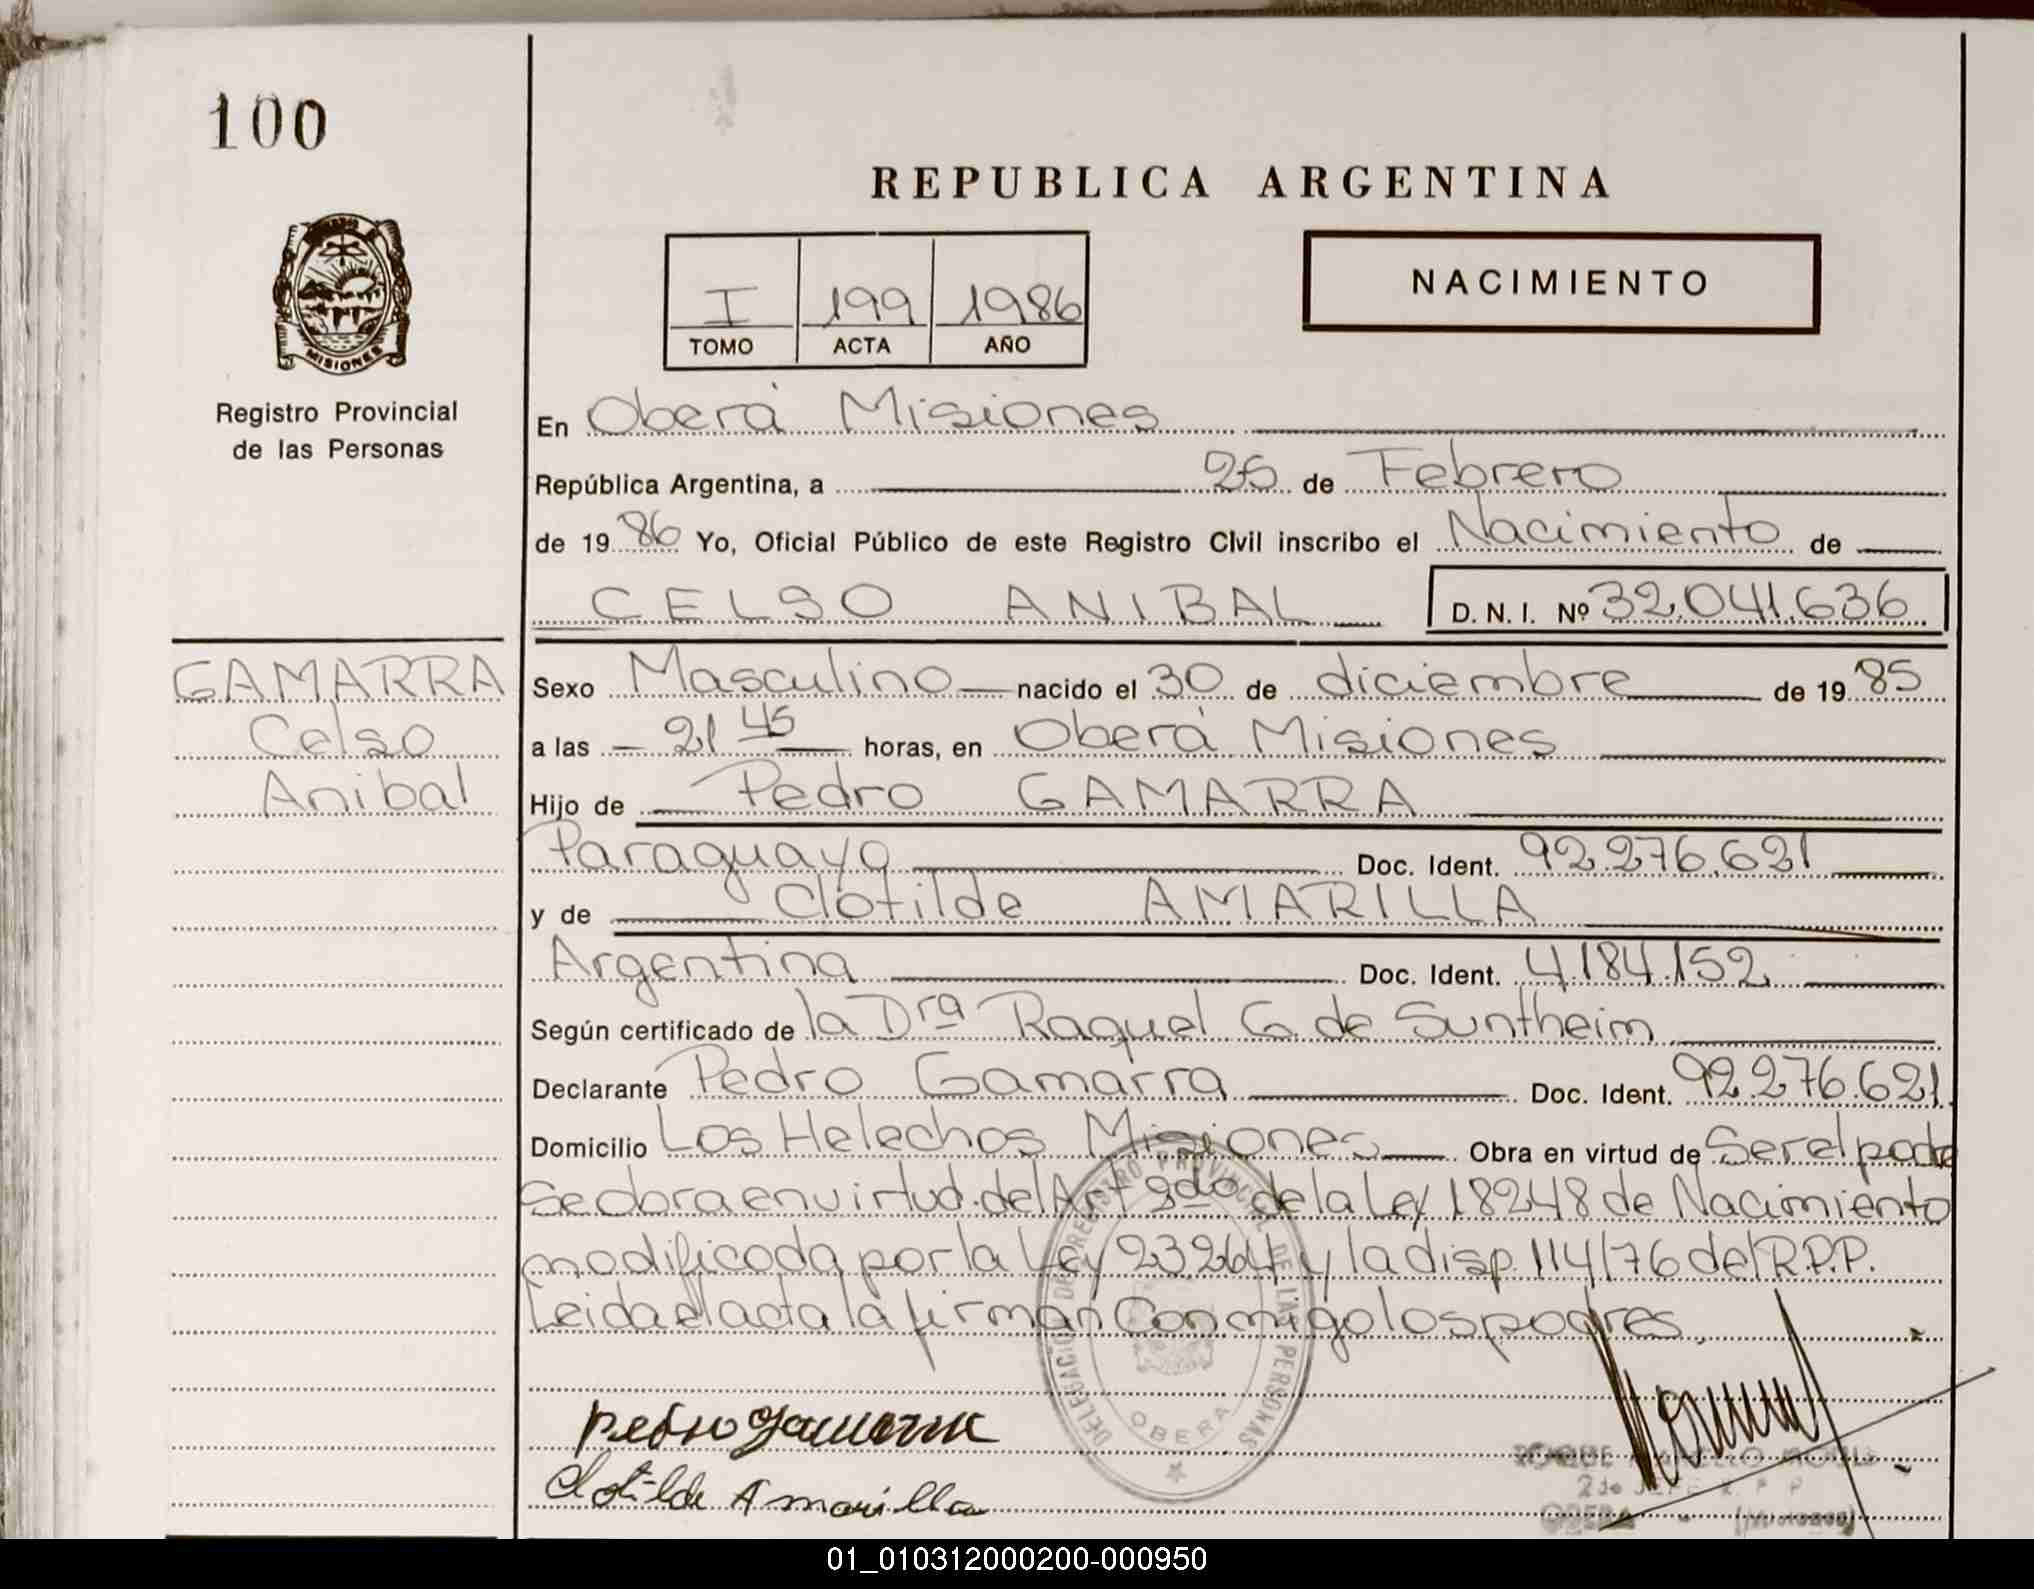 100
REPUBLICA ARGENTINA
NACIMIENTO
I 199 1986
TOMO ACTA AÑO
MISIONES
Registro Provincial
de las Personas
En Oberá Misiones
República Argentina, a 25 de Febrero
de 1986 Yo, Oficial Público de este Registro Civil inscribo el Nacimiento de
CELSO ANIBAL D. N. I. Nº 32.041.636
GAMARRA
Celso
Anibal
Sexo Masculino nacido el 30 de diciembre de 1985
a las 21 45 horas, en Oberá Misiones
Hijo de Pedro GAMARRA
Paraguayo Doc. Ident. 92.276.621
y de Clotilde AMARILLA
Argentina Doc. Ident. 4.184.152
Según certificado de la Dra Raquel G. de Suntheim
Declarante Pedro Gamarra Doc. Ident. 92.276.621
Domicilio Los Helechos Misiones Obra en virtud de Ser el padre
Se obra en virtud del Art 2do de la Ley 18248 de Nacimiento
modificada por la Ley 23264 y la disp. 114/76 del R.P.P.
Leida el acta la firman Conmigo los padres.
DELEGACION DEL REGISTRO PROVINCIAL DE LAS PERSONAS
OBERA
Pedro Gamarra
Clotilde Amarilla
ROQUE
2do JEFE R. P. P.
OBERA (Misiones)
01_010312000200-000950